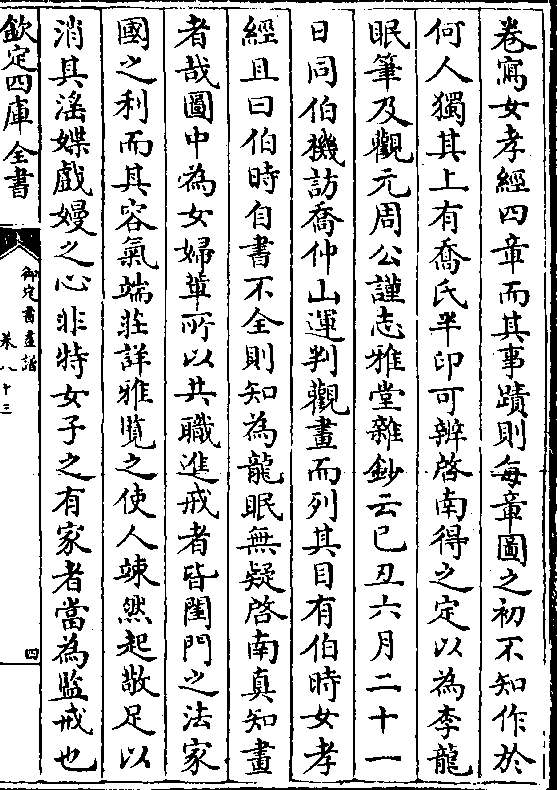 卷寫女孝經四章而其事蹟則每章圖之初不知作於
何人獨其上有喬氏半印可辨啓南得之定以為李龍
眠筆及觀元周公謹志雅堂雜鈔云已丑六月二十一
日同伯機訪喬仲山運判觀畫而列其目有伯時女孝
經且曰伯時自書不全則知為龍眠無疑啓南真知畫
者哉圖中為女婦輩所以共職進戒者皆閨門之法家
國之利而其容氣端莊詳雅覽之使人竦然起敬足以
消其滛媟戲嫚之心非特女子之有家者當為監戒也
欽定四庫全書
御定書畫譜
卷八十三
四